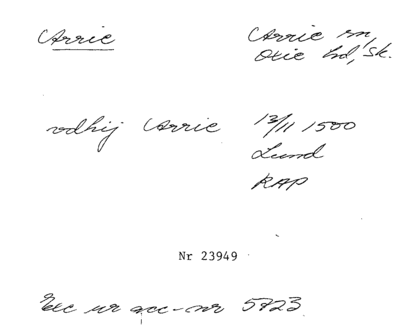 Arrie
Arrie sn,
Oxie hd, Sk.
vdhij Arrie 13/11 1500
Lund
RAP
Nr 23949
Exc ur acc-nr 5723